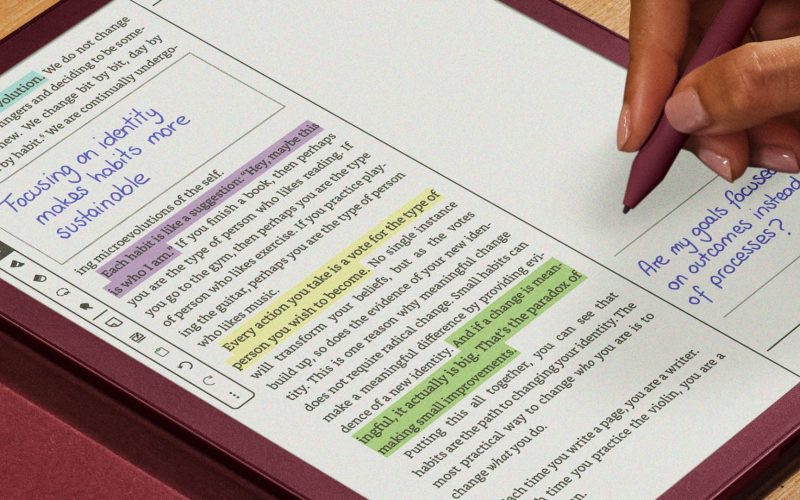 volution. We do not change
ngers and deciding to be some-
new. We change bit by bit, day by
by habit.⁶ We are continually undergo-
Focusing on identity
makes habits more
sustainable
ing microevolutions of the self.
Each habit is like a suggestion: “Hey, maybe this
is who I am.” If you finish a book, then perhaps
you are the type of person who likes reading. If
you go to the gym, then perhaps you are the type
of person who likes exercise. If you practice play-
ing the guitar, perhaps you are the type of person
who likes music.
Every action you take is a vote for the type of
person you wish to become. No single instance
will transform your beliefs, but as the votes
build up, so does the evidence of your new iden-
tity. This is one reason why meaningful change
does not require radical change. Small habits can
make a meaningful difference by providing evi-
dence of a new identity. And if a change is mean-
ingful, it actually is big. That’s the paradox of
making small improvements.
Putting this all together, you can see that
habits are the path to changing your identity. The
most practical way to change who you are is to
change what you do.
Each time you write a page, you are a writer.
h time you practice the violin, you are a
n.
Are my goals focused
on outcomes instead
of processes?